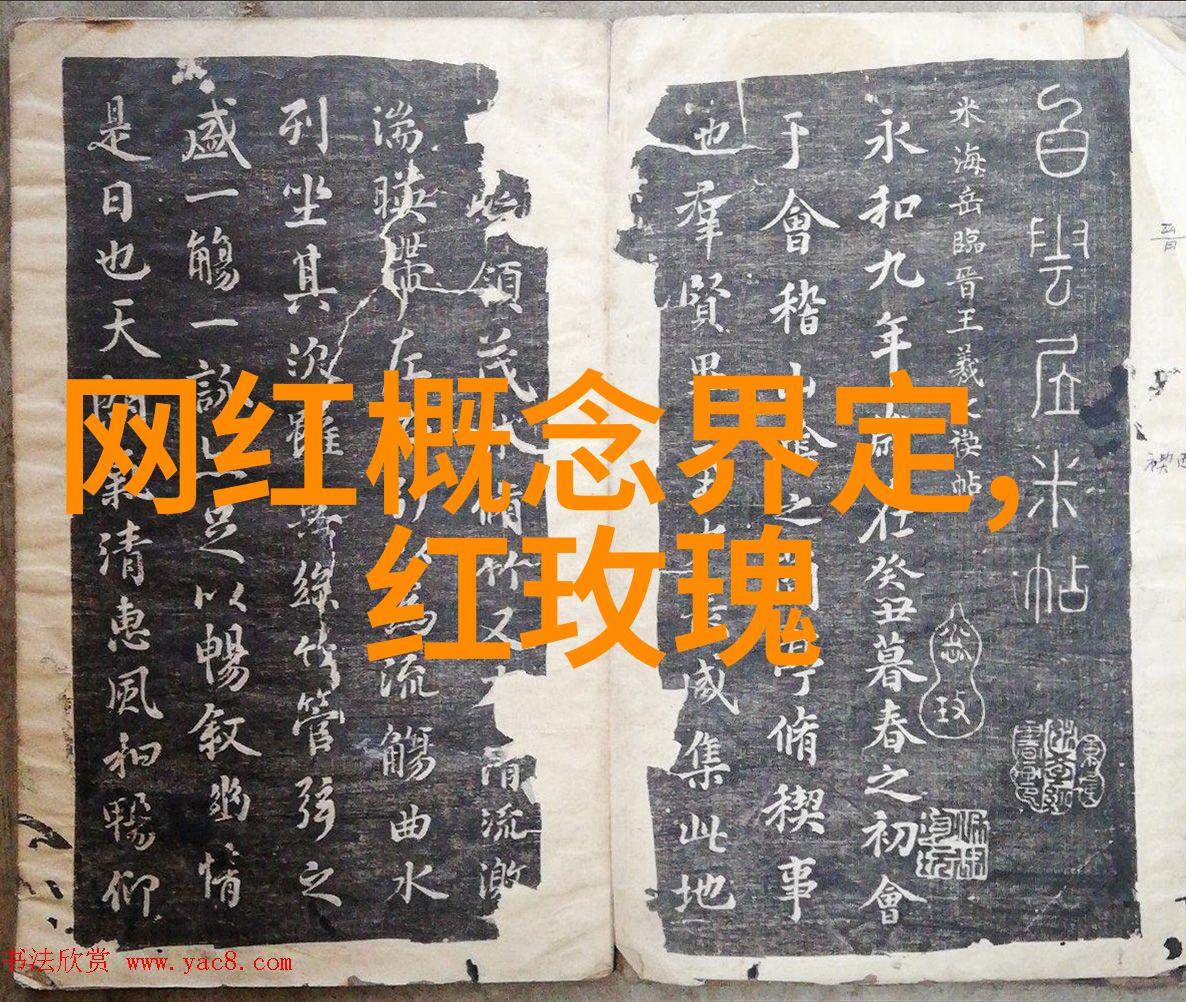 网红概念界定,
红玫瑰
白雲居米帖
米海岳臨晉王羲之禊帖
永和九年歲在癸丑暮春之初會
于會稽山陰之蘭亭脩稧事
也羣賢畢至咸集此地
領茂林脩竹又有清流激
湍暎帶左右引以為流觴曲水
列坐其次雖無絲竹管弦之
盛一觴一詠亦足以暢敘幽情
是日也天朗氣清惠風和暢仰
书法欣赏 www.yac8.com